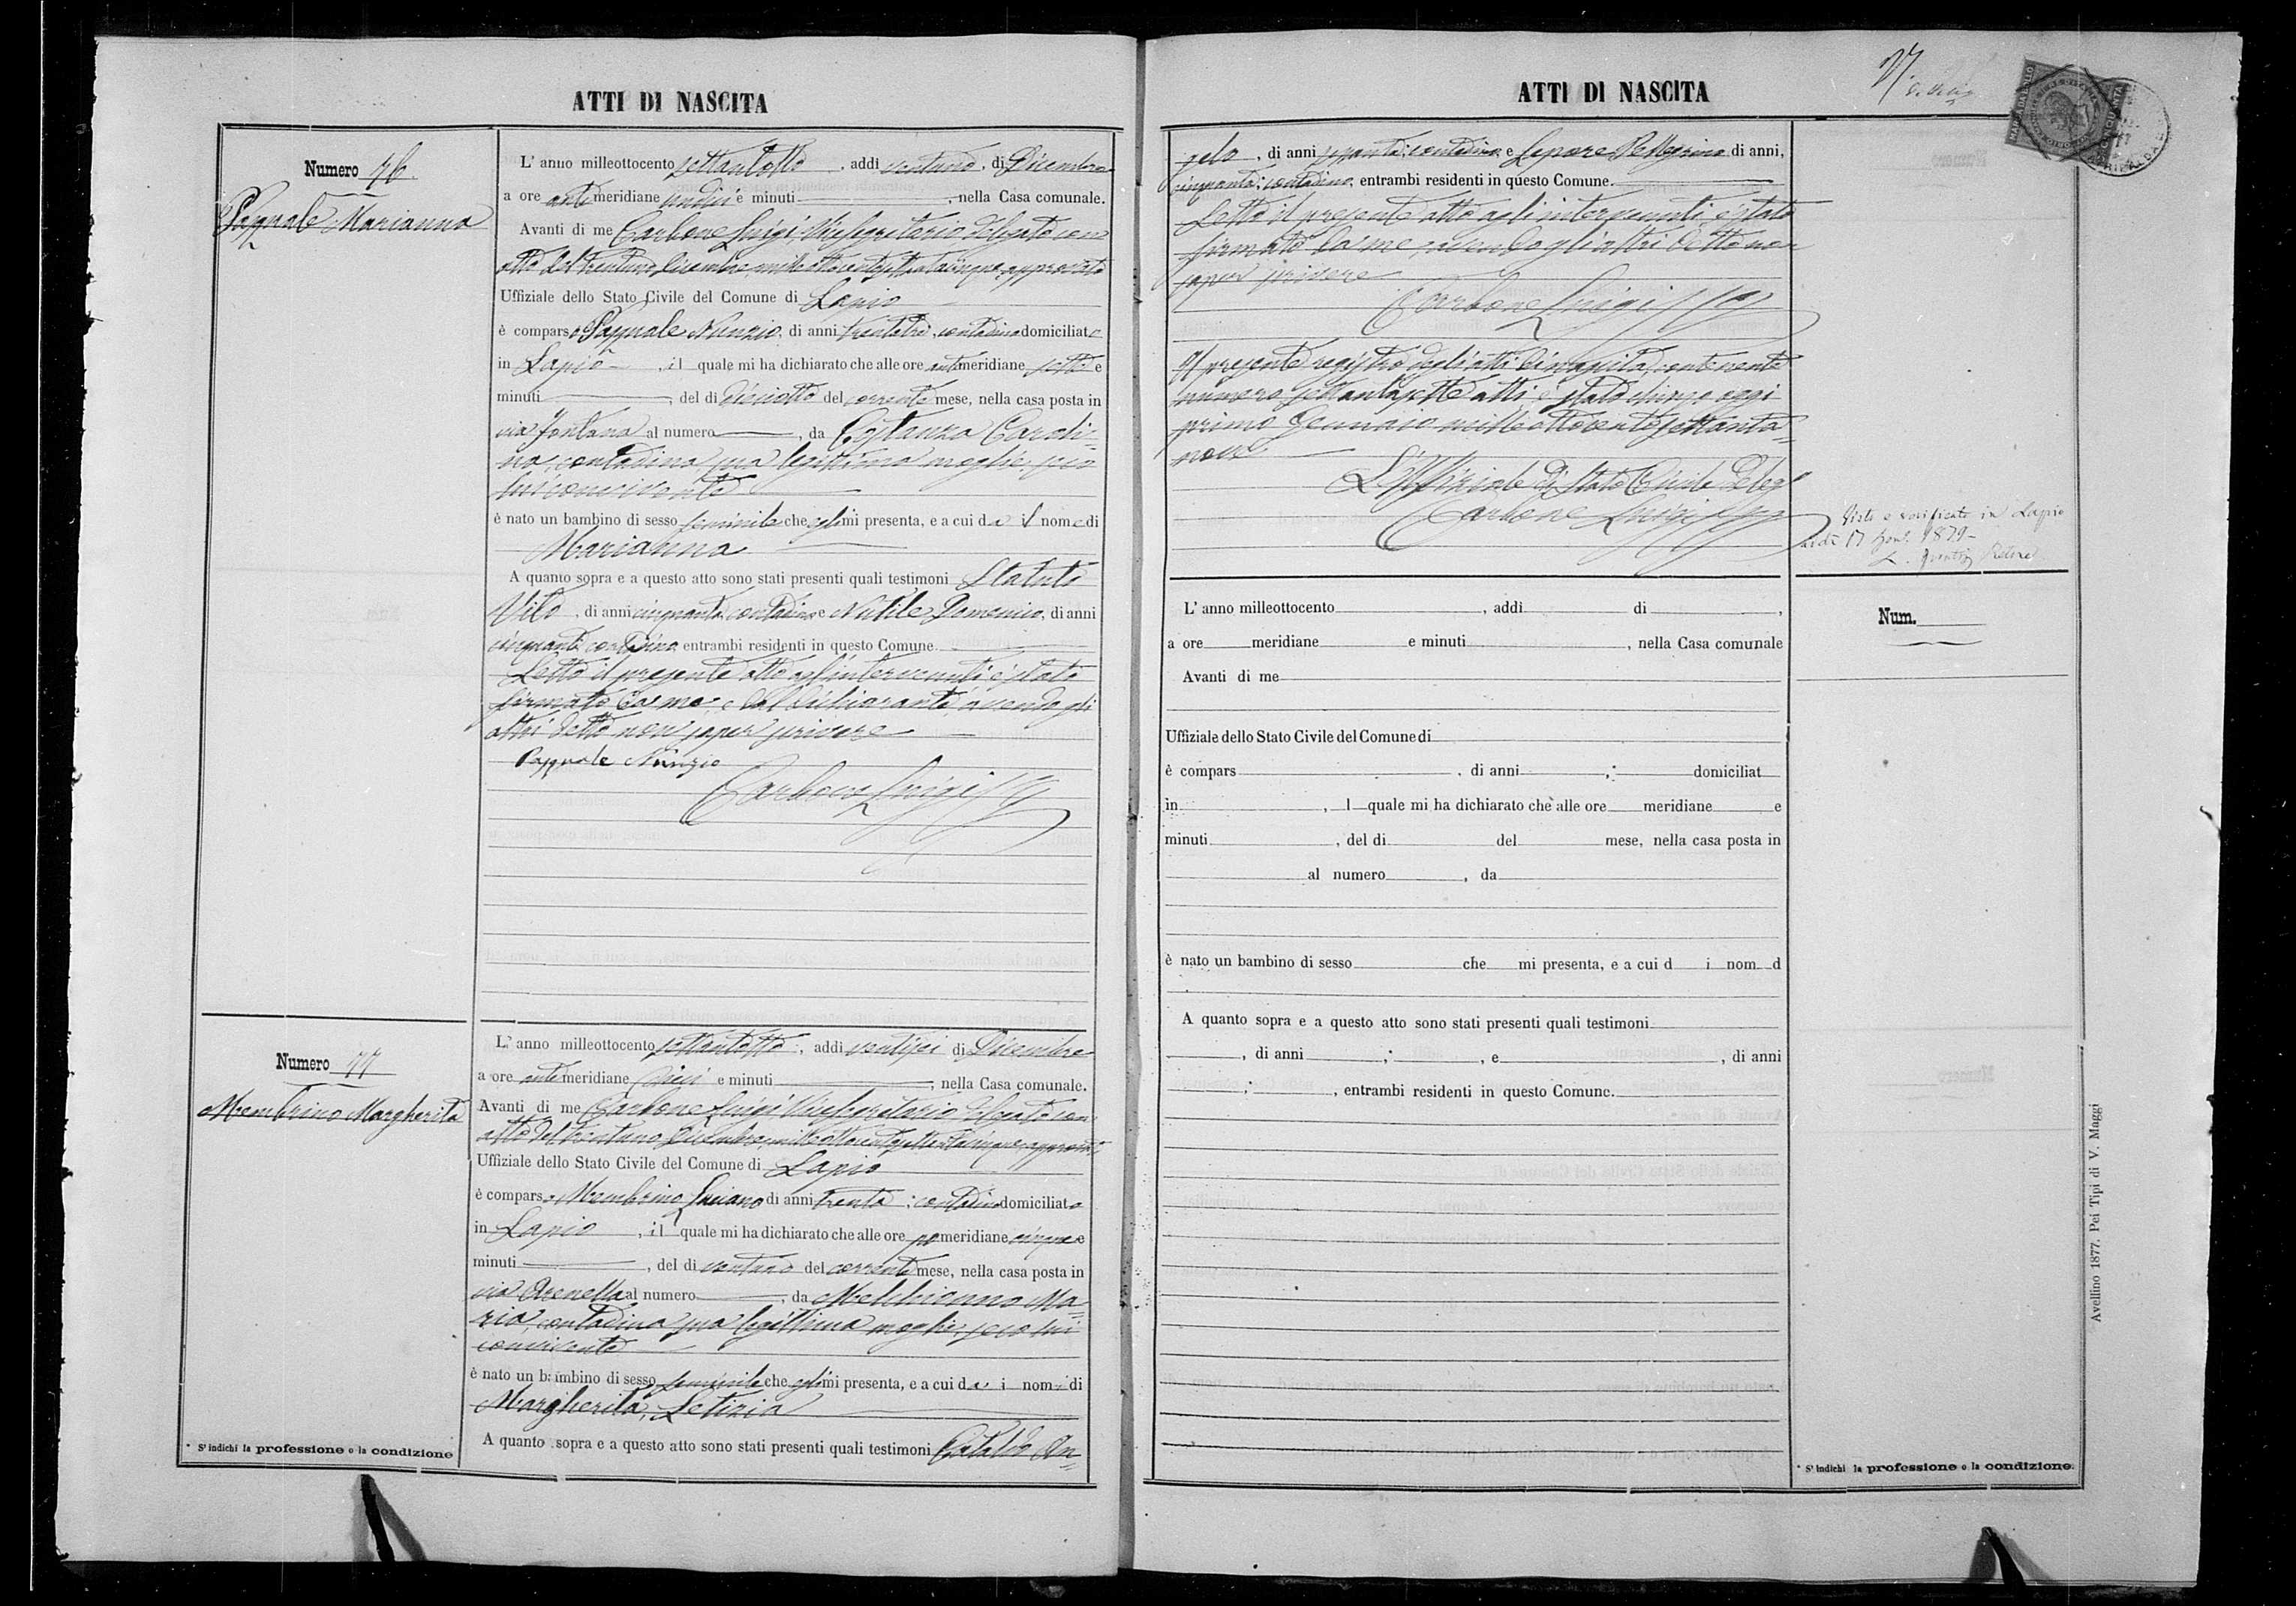 ATTI DI NASCITA
Numero 76
Pasquale Marianna
L' anno milleottocento settantotto, addì ventuno, di Dicembre
a ore antemeridiane undici e minuti, nella Casa comunale.
Avanti di me Carbone Luigi, Vicesegretario delegato con
atto del trentuno Dicembre milleottocentosettantacinque, approvato
Uffiziale dello Stato Civile del Comune di Lapio
è comparso Pasquale Nunzio, di anni trentatre, contadino domiciliato
in Lapio, il quale mi ha dichiarato che alle ore antemeridiane sette e
minuti, del dì dieciotto del corrente mese, nella casa posta in
via Fontana al numero, da Costanza Caroli-
na, contadina, sua legittima moglie, seco
lui convivente
è nato un bambino di sesso feminile che egli mi presenta, e a cui dà il nome di
Marianna
A quanto sopra e a questo atto sono stati presenti quali testimoni Statuto
Vito, di anni cinquanta, contadino e Nutile Domenico, di anni
cinquanta, contadino, entrambi residenti in questo Comune.
Letto il presente atto agl'intervenuti è stato
firmato da me, e dal dichiarante, avendo gli
altri detto non saper scrivere
Pasquale Nunzio
Carbone Luigi
Numero 77
Membrino Margherita
L' anno milleottocento settantotto, addì ventisei di Dicembre
a ore antemeridiane dieci e minuti, nella Casa comunale.
Avanti di me Carbone Luigi Vicesegretario delegato con
atto del trentuno Dicembre milleottocentosettantacinque, approvato
Uffiziale dello Stato Civile del Comune di Lapio
è comparso Membrino Luciano di anni trenta; contadino domiciliato
in Lapio, il quale mi ha dichiarato che alle ore pomeridiane cinque e
minuti, del dì ventuno del corrente mese, nella casa posta in
via Arenella al numero, da Melchionno Ma-
ria, contadina sua legittima moglie, seco lui
convivente
è nato un bambino di sesso feminile che egli mi presenta, e a cui dà i nomi di
Margherita, Letizia
A quanto sopra e a questo atto sono stati presenti quali testimoni Cataldo An-
* S' indichi la professione o la condizione
ATTI DI NASCITA
gelo, di anni sessanta; contadino, e Lepore Pellegrino di anni,
cinquanta; contadino, entrambi residenti in questo Comune.
Letto il presente atto agli intervenuti, è stato
firmato da me, avendo gli altri detto non
saper scrivere
Carbone Luigi
Il presente registro degli atti di nascita contenente
numero settantasette atti è stato chiuso oggi
primo Gennaio milleottocentosettanta-
nove
L'Uffiziale di Stato Civile Delegato
Carbone Luigi
Visto e verificato in Lapio
17 1879
Pretore
L' anno milleottocento, addì di,
a ore meridiane e minuti, nella Casa comunale
Avanti di me
Uffiziale dello Stato Civile del Comune di
è compars, di anni, domiciliat
in, l quale mi ha dichiarato che alle ore meridiane e
minuti, del di del mese, nella casa posta in
al numero, da
è nato un bambino di sesso che mi presenta, e a cui d i nom d
A quanto sopra e a questo atto sono stati presenti quali testimoni
, di anni, e, di anni
, entrambi residenti in questo Comune.
Num.
* S' indichi la professione o la condizione.
Avellino 1877. Pei Tipi di V. Maggi